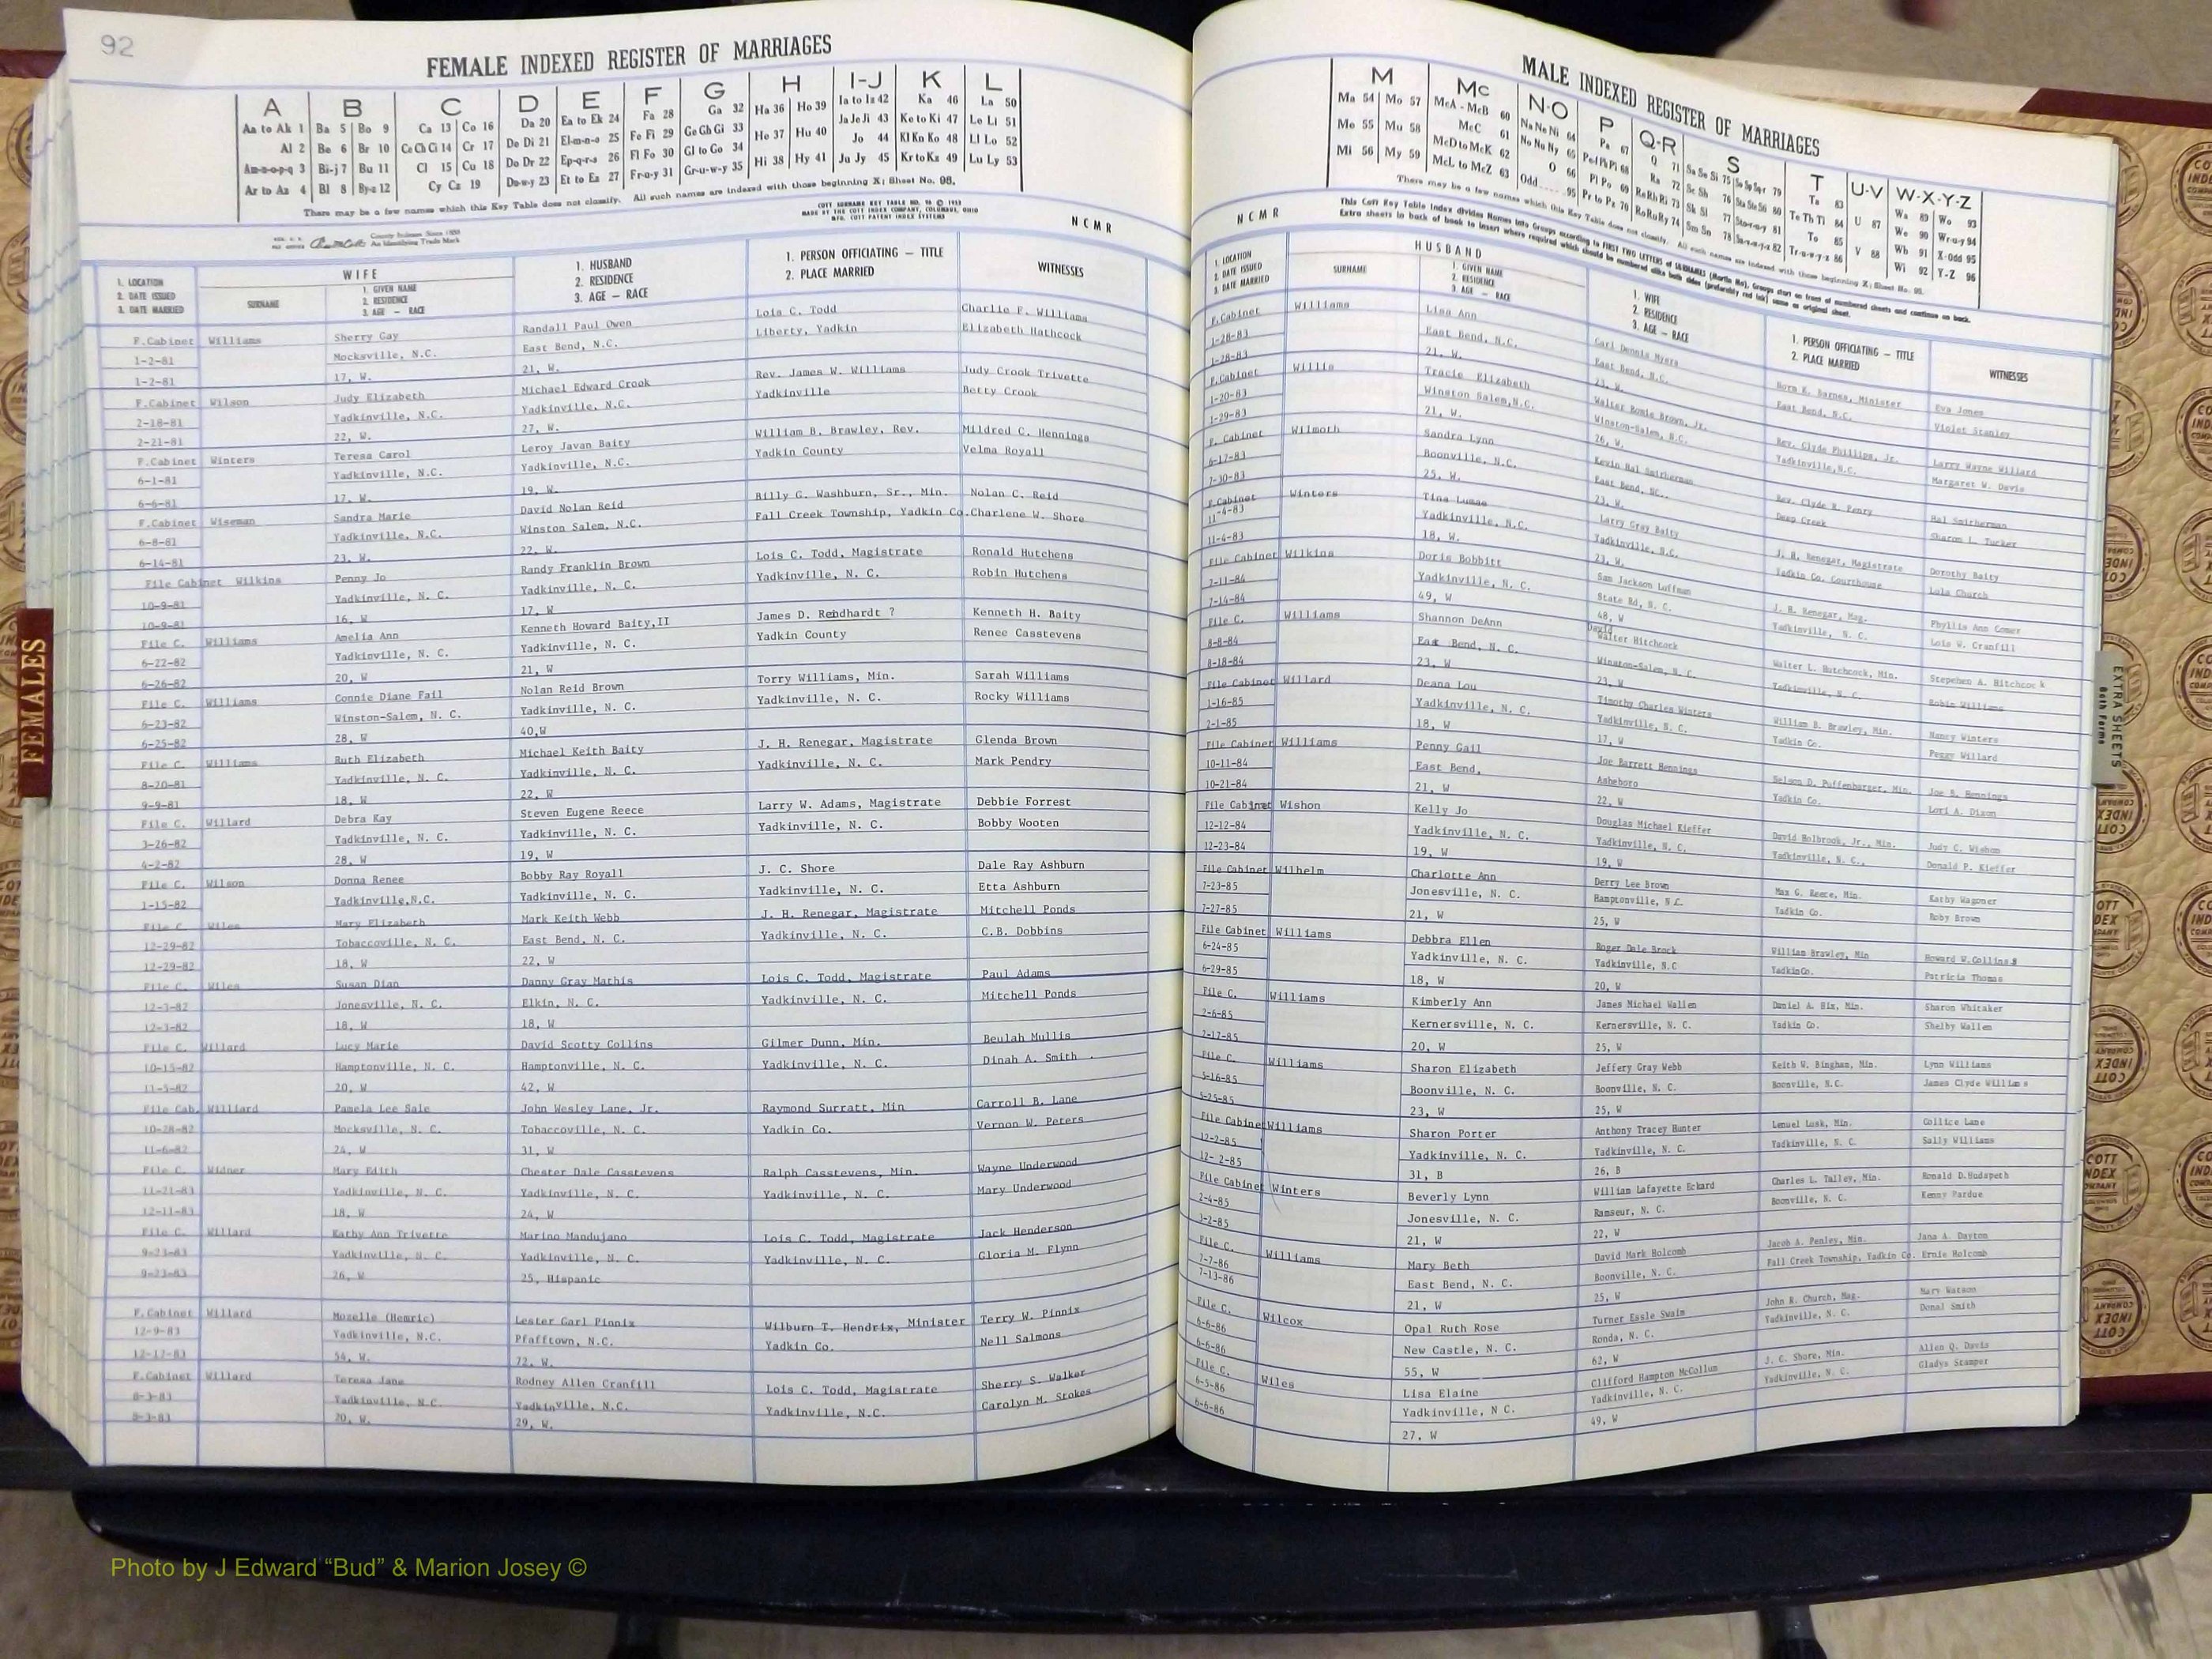 92
FEMALE INDEXED REGISTER OF MARRIAGES
A B C D E F G H I-J K L
Aa to Ak 1 Ba 5 Bo 9 Ca 13 Co 16 Da 20 Ea to Ek 24 Fa 28 Ga 32 Ha 36 Ho 39 Ia to Iz 42 Ka 46 La 50
Al 2 Be 6 Br 10 Ce Ch Ci 14 Cr 17 De Di 21 El-m-n-o 25 Fe Fi 29 Ge Gh Gi 33 He 37 Hu 40 Ja Je Ji 43 Ke to Ki 47 Le Li 51
Am-n-o-p-q 3 Bi-j 7 Bu 11 Cl 15 Cu 18 Do Dr 22 Ep-q-r-s 26 Fl Fo 30 Gl to Go 34 Hi 38 Hy 41 Jo 44 Kl Kn Ko 48 Ll Lo 52
Ar to Az 4 Bl 8 By-z 12 Cy Cz 19 Du-w-y 23 Et to Ez 27 Fr-u-y 31 Gr-u-w-y 35 Ju Jy 45 Kr to Kz 49 Lu Ly 53
There may be a few names which this Key Table does not classify. All such names are indexed with those beginning X; Sheet No. 98.
COTT SURNAME KEY TABLE NO. 96 © 1953
MADE BY THE COTT INDEX COMPANY, COLUMBUS, OHIO
MFG. COTT PATENT INDEX SYSTEMS
County Indexes Since 1888
An Identifying Trade Mark
NCMR
1. LOCATION 2. DATE ISSUED 3. DATE MARRIED
WIFE
SURNAME
1. GIVEN NAME 2. RESIDENCE 3. AGE — RACE
1. HUSBAND 2. RESIDENCE 3. AGE — RACE
1. PERSON OFFICIATING — TITLE 2. PLACE MARRIED
WITNESSES
F.Cabinet Williams Sherry Gay Randall Paul Owen Lois C. Todd Charlie F. Williams
1-2-81 Mocksville, N.C. East Bend, N.C. Liberty, Yadkin Elizabeth Hathcock
1-2-81 17, W. 21, W.
F.Cabinet Wilson Judy Elizabeth Michael Edward Crook Rev. James W. Williams Judy Crook Trivette
2-18-81 Yadkinville, N.C. Yadkinville, N.C. Yadkinville Betty Crook
2-21-81 22, W. 27, W.
F.Cabinet Winters Teresa Carol Leroy Javan Baity William B. Brawley, Rev. Mildred C. Hennings
6-1-81 Yadkinville, N.C. Yadkinville, N.C. Yadkin County Velma Royall
6-6-81 17, W. 19, W.
F.Cabinet Wiseman Sandra Marie David Nolan Reid Billy G. Washburn, Sr., Min. Nolan C. Reid
6-8-81 Yadkinville, N.C. Winston Salem, N.C. Fall Creek Township, Yadkin Co. Charlene W. Shore
6-14-81 23, W. 22, W.
File Cabinet Wilkins Penny Jo Randy Franklin Brown Lois C. Todd, Magistrate Ronald Hutchens
10-9-81 Yadkinville, N. C. Yadkinville, N. C. Yadkinville, N. C. Robin Hutchens
10-9-81 16, W 17, W
File C. Williams Amelia Ann Kenneth Howard Baity,II James D. Rebdhardt ? Kenneth H. Baity
6-22-82 Yadkinville, N. C. Yadkinville, N. C. Yadkin County Renee Casstevens
6-26-82 20, W 21, W
File C. Williams Connie Diane Fail Nolan Reid Brown Torry Williams, Min. Sarah Williams
6-23-82 Winston-Salem, N. C. Yadkinville, N. C. Yadkinville, N. C. Rocky Williams
6-25-82 28, W 40,W
File C. Williams Ruth Elizabeth Michael Keith Baity J. H. Renegar, Magistrate Glenda Brown
8-20-81 Yadkinville, N. C. Yadkinville, N. C. Yadkinville, N. C. Mark Pendry
9-9-81 18, W 22, W
File C. Willard Debra Kay Steven Eugene Reece Larry W. Adams, Magistrate Debbie Forrest
3-26-82 Yadkinville, N. C. Yadkinville, N. C. Yadkinville, N. C. Bobby Wooten
4-2-82 28, W 19, W
File C. Wilson Donna Renee Bobby Ray Royall J. C. Shore Dale Ray Ashburn
1-15-82 Yadkinville,N.C. Yadkinville, N. C. Yadkinville, N. C. Etta Ashburn
File C. Wiles Mary Elizabeth Mark Keith Webb J. H. Renegar, Magistrate Mitchell Ponds
12-29-82 Tobaccoville, N. C. East Bend, N. C. Yadkinville, N. C. C.B. Dobbins
12-29-82 18, W 22, W
File C. Wiles Susan Dian Danny Gray Mathis Lois C. Todd, Magistrate Paul Adams
12-3-82 Jonesville, N. C. Elkin, N. C. Yadkinville, N. C. Mitchell Ponds
12-3-82 18, W 18, W
File C. Willard Lucy Marie David Scotty Collins Gilmer Dunn, Min. Beulah Mullis
10-15-82 Hamptonville, N. C. Hamptonville, N. C. Yadkinville, N. C. Dinah A. Smith
11-5-82 20, W 42, W
File Cab. Williard Pamela Lee Sale John Wesley Lane, Jr. Raymond Surratt, Min Carroll B. Lane
10-28-82 Mocksville, N. C. Tobaccoville, N. C. Yadkin Co. Vernon W. Peters
11-6-82 24, W 31, W
File C. Widner Mary Edith Chester Dale Casstevens Ralph Casstevens, Min. Wayne Underwood
11-21-83 Yadkinville, N. C. Yadkinville, N. C. Yadkinville, N. C. Mary Underwood
12-11-83 18, W 24, W
File C. Willard Kathy Ann Trivette Marino Mandujano Lois C. Todd, Magistrate Jack Henderson
9-23-83 Yadkinville, N. C. Yadkinville, N. C. Yadkinville, N. C. Gloria M. Flynn
9-23-83 26, W 25, Hispanic
F.Cabinet Willard Mozelle (Hemric) Lester Garl Pinnix Wilburn T. Hendrix, Minister Terry W. Pinnix
12-9-83 Yadkinville, N.C. Pfafftown, N.C. Yadkin Co. Nell Salmons
12-17-83 54, W. 72, W.
F.Cabinet Willard Teresa Jane Rodney Allen Cranfill Lois C. Todd, Magistrate Sherry S. Walker
8-3-83 Yadkinville, N.C. Yadkinville, N.C. Yadkinville, N.C. Carolyn M. Stokes
8-3-83 20, W. 29, W.
FEMALES
MALE INDEXED REGISTER OF MARRIAGES
M Mc N-O P Q-R S T U-V W-X-Y-Z
Ma 54 Mo 57 McA - McB 60 Na Ne Ni 64 Pa 67 Q 71 Sa Se Si 75 So Sp Sq-r 79 Ta 83 U 87 Wa 89 Wo 93
Me 55 Mu 58 McC 61 No Nu Ny 65 Pe Pf Ph Pi 68 Ra 72 Sc Sh 76 Sta Ste Sti 80 Te Th Ti 84 V 88 We 90 Wr-u-y 94
Mi 56 My 59 McD to McK 62 O 66 Pl Po 69 Re Rh Ri 73 Sk Sl 77 Sto-r-u-y 81 To 85 Wh 91 X-Odd 95
McL to McZ 63 Odd 95 Pr to Pz 70 Ro Ru Ry 74 Sm Sn 78 Su-v-w-y-z 82 Tr-u-w-y-z 86 Wi 92 Y-Z 96
There may be a few names which this Key Table does not classify. All such names are indexed with those beginning X; Sheet No. 98.
This Cott Key Table Index divides Names into Groups according to FIRST TWO LETTERS of SURNAMES (Martin Ma). Groups start on front of numbered sheets and continue on back.
Extra sheets in back of book to insert where required which should be numbered alike both sides (preferably red ink) same as original sheet.
NCMR
1. LOCATION 2. DATE ISSUED 3. DATE MARRIED
HUSBAND
SURNAME
1. GIVEN NAME 2. RESIDENCE 3. AGE — RACE
1. WIFE 2. RESIDENCE 3. AGE — RACE
1. PERSON OFFICIATING — TITLE 2. PLACE MARRIED
WITNESSES
F.Cabinet Williams Lisa Ann Carl Dennis Myers Norm E. Barnes, Minister Eva Jones
1-28-83 East Bend, N.C. East Bend, N.C. East Bend, N.C. Violet Stanley
1-28-83 21, W. 23, W.
F.Cabinet Willis Tracie Elizabeth Walter Romie Brown, Jr. Rev. Clyde Phillips, Jr. Larry Wayne Willard
1-20-83 Winston Salem,N.C. Winston-Salem, N.C. Yadkinville,N.C. Margaret W. Davis
1-29-83 21, W. 26, W.
F. Cabinet Wilmoth Sandra Lynn Kevin Hal Smitherman Rev. Clyde R. Penry Hal Smitherman
6-17-83 Boonville, N.C. East Bend, NC.. Deep Creek Sharon L. Tucker
7-30-83 25, W. 23, W.
F.Cabinet Winters Tina Lumae Larry Gray Baity J. H. Renegar, Magistrate Dorothy Baity
11-4-83 Yadkinville, N.C. Yadkinville, N.C. Yadkin Co. Courthouse Lola Church
11-4-83 18, W. 23, W.
File Cabinet Wilkins Doris Bobbitt Sam Jackson Loffman J. H. Renegar, Mag. Phyllis Ann Comer
7-11-84 Yadkinville, N. C. State Rd, N. C. Yadkinville, N. C. Lois W. Cranfill
7-14-84 49, W 48, W
File C. Williams Shannon DeAnn David Walter Hitchcock Walter L. Hutchcock, Min. Stepehen A. Hitchcock
8-8-84 East Bend, N. C. Winston-Salem, N. C. Yadkinville, N. C. Robin Williams
8-18-84 23, W 23, W
File Cabinet Willard Deana Lou Timothy Charles Winters William B. Brawley, Min. Nancy Winters
1-16-85 Yadkinville, N. C. Yadkinville, N. C. Yadkin Co. Peggy Willard
2-1-85 18, W 17, W
File Cabinet Williams Penny Gail Joe Barrett Hennings Nelson D. Puffenbarger, Min. Joe S. Hennings
10-11-84 East Bend, Asheboro Yadkin Co. Lori A. Dixon
10-21-84 21, W 22, W
File Cabinet Wishon Kelly Jo Douglas Michael Kieffer David Holbrook, Jr., Min. Judy C. Wishon
12-12-84 Yadkinville, N. C. Yadkinville, N. C. Yadkinville, N. C., Donald P. Kieffer
12-23-84 19, W 19, W
File Cabinet Wilhelm Charlotte Ann Derry Lee Brown Max G. Reece, Min. Kathy Wagoner
7-23-85 Jonesville, N. C. Hamptonville, N.C. Yadkin Co. Roby Brown
7-27-85 21, W 25, W
File Cabinet Williams Debbra Ellen Roger Dale Brock William Brawley, Min Howard W.Collins
6-24-85 Yadkinville, N. C. Yadkinville, N.C YadkinCo. Patricia Thomas
6-29-85 18, W 20, W
File C. Williams Kimberly Ann James Michael Wallen Daniel A. Hix, Min. Sharon Whitaker
2-6-85 Kernersville, N. C. Kernersville, N. C. Yadkin Co. Shelby Wallen
2-17-85 20, W 25, W
File C. Williams Sharon Elizabeth Jeffery Gray Webb Keith W. Bingham, Min. Lynn Williams
5-16-85 Boonville, N. C. Boonville, N. C. Boonville, N.C. James Clyde Williams
5-25-85 23, W 25, W
File Cabinet Williams Sharon Porter Anthony Tracey Hunter Lemuel Lusk, Min. Collice Lane
12-2-85 Yadkinville, N. C. Yadkinville, N. C. Yadkinville, N. C. Sally Williams
12- 2-85 31, B 26, B
File Cabinet Winters Beverly Lynn William Lafayette Eckard Charles L. Talley, Min. Ronald D.Hudspeth
2-4-85 Jonesville, N. C. Ramseur, N. C. Boonville, N. C. Kenny Pardue
3-2-85 21, W 22, W
File C. Williams Mary Beth David Mark Holcomb Jacob A. Penley, Min. Jana A. Dayton
7-7-86 East Bend, N. C. Boonville, N. C. Fall Creek Township, Yadkin Co. Ernie Holcomb
7-13-86 21, W 25, W
File C. Wilcox Opal Ruth Rose Turner Essle Swaim John R. Church, Mag. Mary Watson
6-6-86 New Castle, N. C. Ronda, N. C. Yadkinville, N. C. Donal Smith
6-6-86 55, W 62, W
File C. Wiles Lisa Elaine Clifford Hampton McCollum J. C. Shore, Min. Allen Q. Davis
6-5-86 Yadkinville, N C. Yadkinville, N. C. Yadkinville, N. C. Gladys Stamper
6-6-86 27, W 49, W
EXTRA SHEETS
Both Forms
Photo by J Edward “Bud” & Marion Josey ©